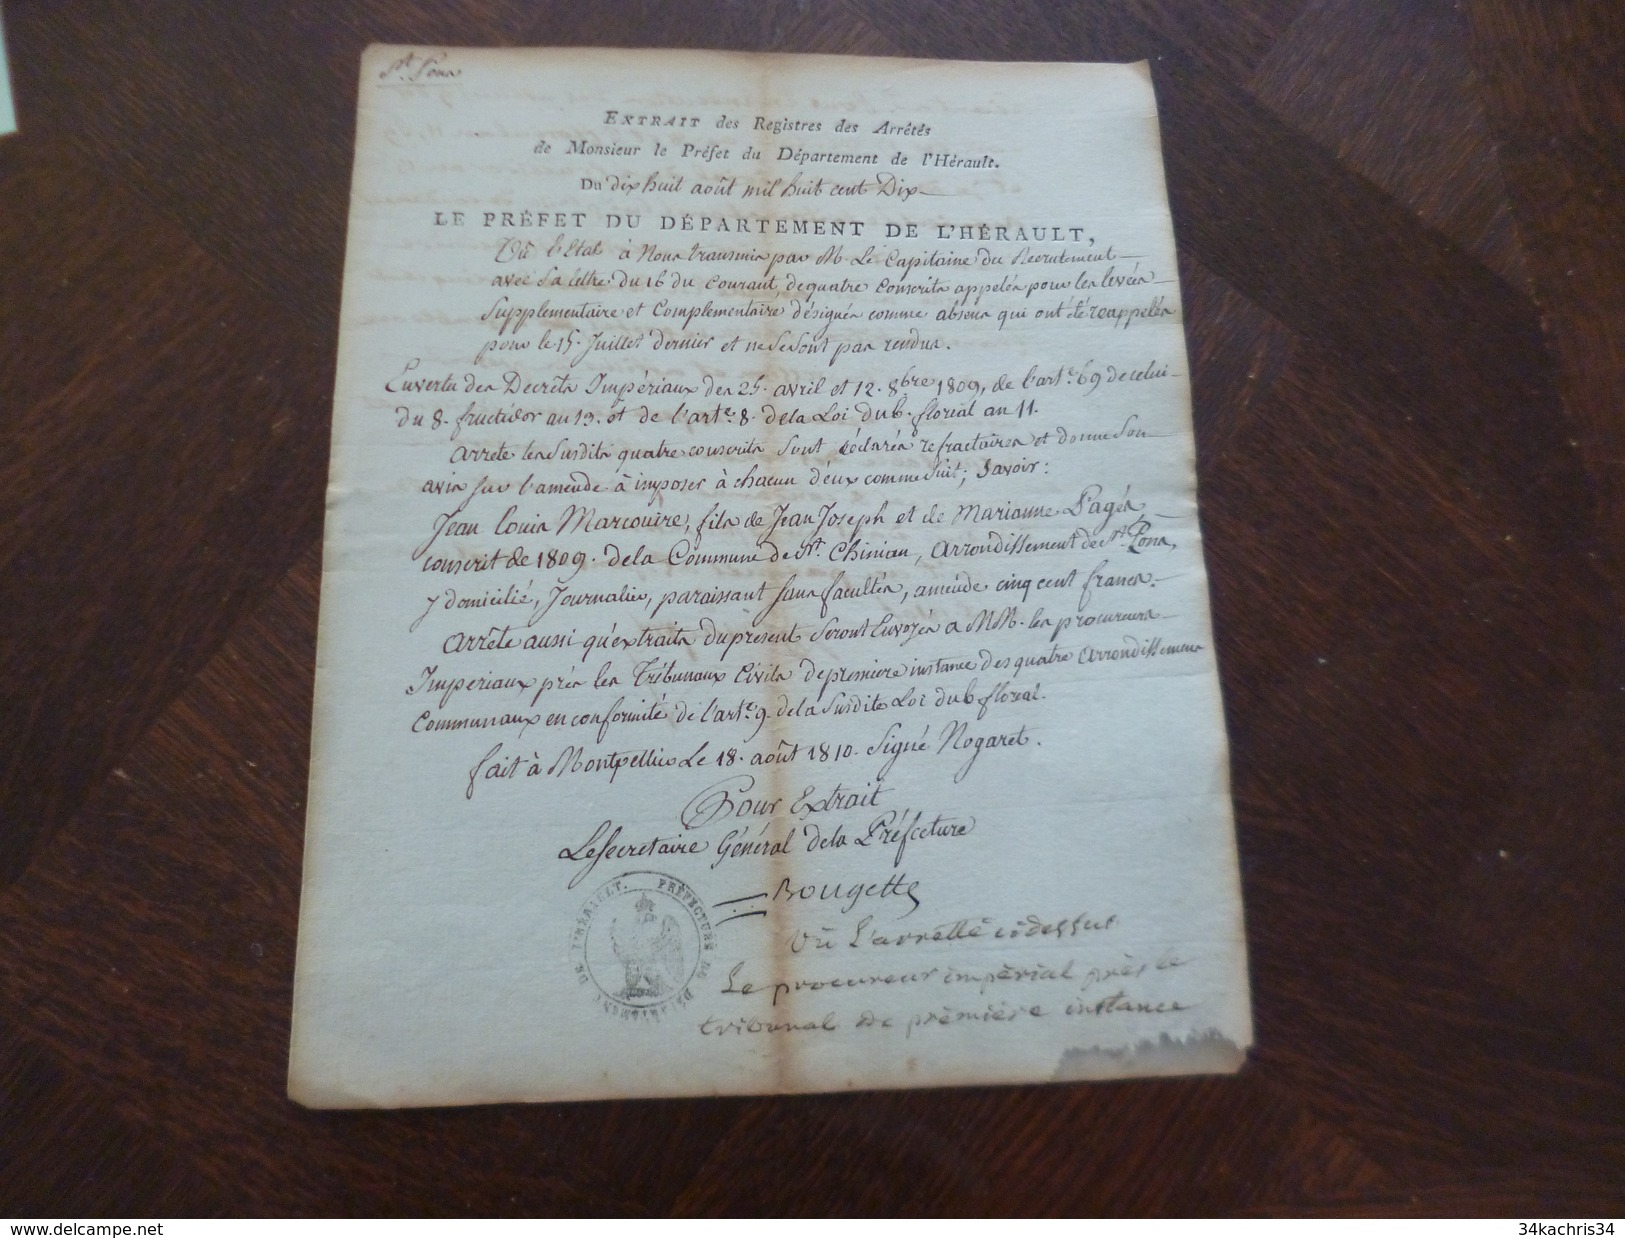 St. Pons
EXTRAIT des Registres des Arrêtés
de Monsieur le Préfet du Département de l'Hérault.
Du dix huit août mil huit cent Dix
LE PRÉFET DU DÉPARTEMENT DE L'HÉRAULT,
Vû l'Etat à Nous transmis par M. Le Capitaine du Récrutement
avec Sa lettre du 16 du Courant, de quatre Conscrits appelés pour les levées
Supplementaire et Complementaire désignés comme absens qui ont été réappelés
pour le 15. Juillet dernier et ne Se Sont pas rendus.
En vertu des Decrets Impériaux des 25. avril et 12. 8bre 1809, de l'arte. 69 de celui
du 8. fructidor an 13. et de l'arte. 8. de la Loi du 6. floréal an 11.
Arrete les Susdits quatre conscrits Sont déclarés refractaires et donne Son
avis Sur l'amende à imposer à chacun d'eux comme Suit; Savoir:
Jean Louis Marcouire, fils de Jean Joseph et de Marianne Pagés,
conscrit de 1809. de la Commune de St. Chinian, arrondissement de St. Pons,
y domicilié, Journalier, paraissant Sans facultés, amende cinq cent francs.
Arrête aussi qu'extraits du présent Seront Envoyés a MM. les procureurs
Impériaux près les Tribunaux Civils de premiere instance des quatre arrondissemens
Communaux en conformité de l'arte. 9. de la Susdite Loi du 6 floréal.
fait à Montpellier Le 18. août 1810. Signé Nogaret.
Pour Extrait
Le Secretaire Général de la Préfecture
Bougette
PRÉFECTURE DU DÉPARTEMENT DE L'HÉRAULT.
Vû L'arretté cidessus
Le procureur impérial près le
tribunal de première instance
www.delcampe.net
34kachris34